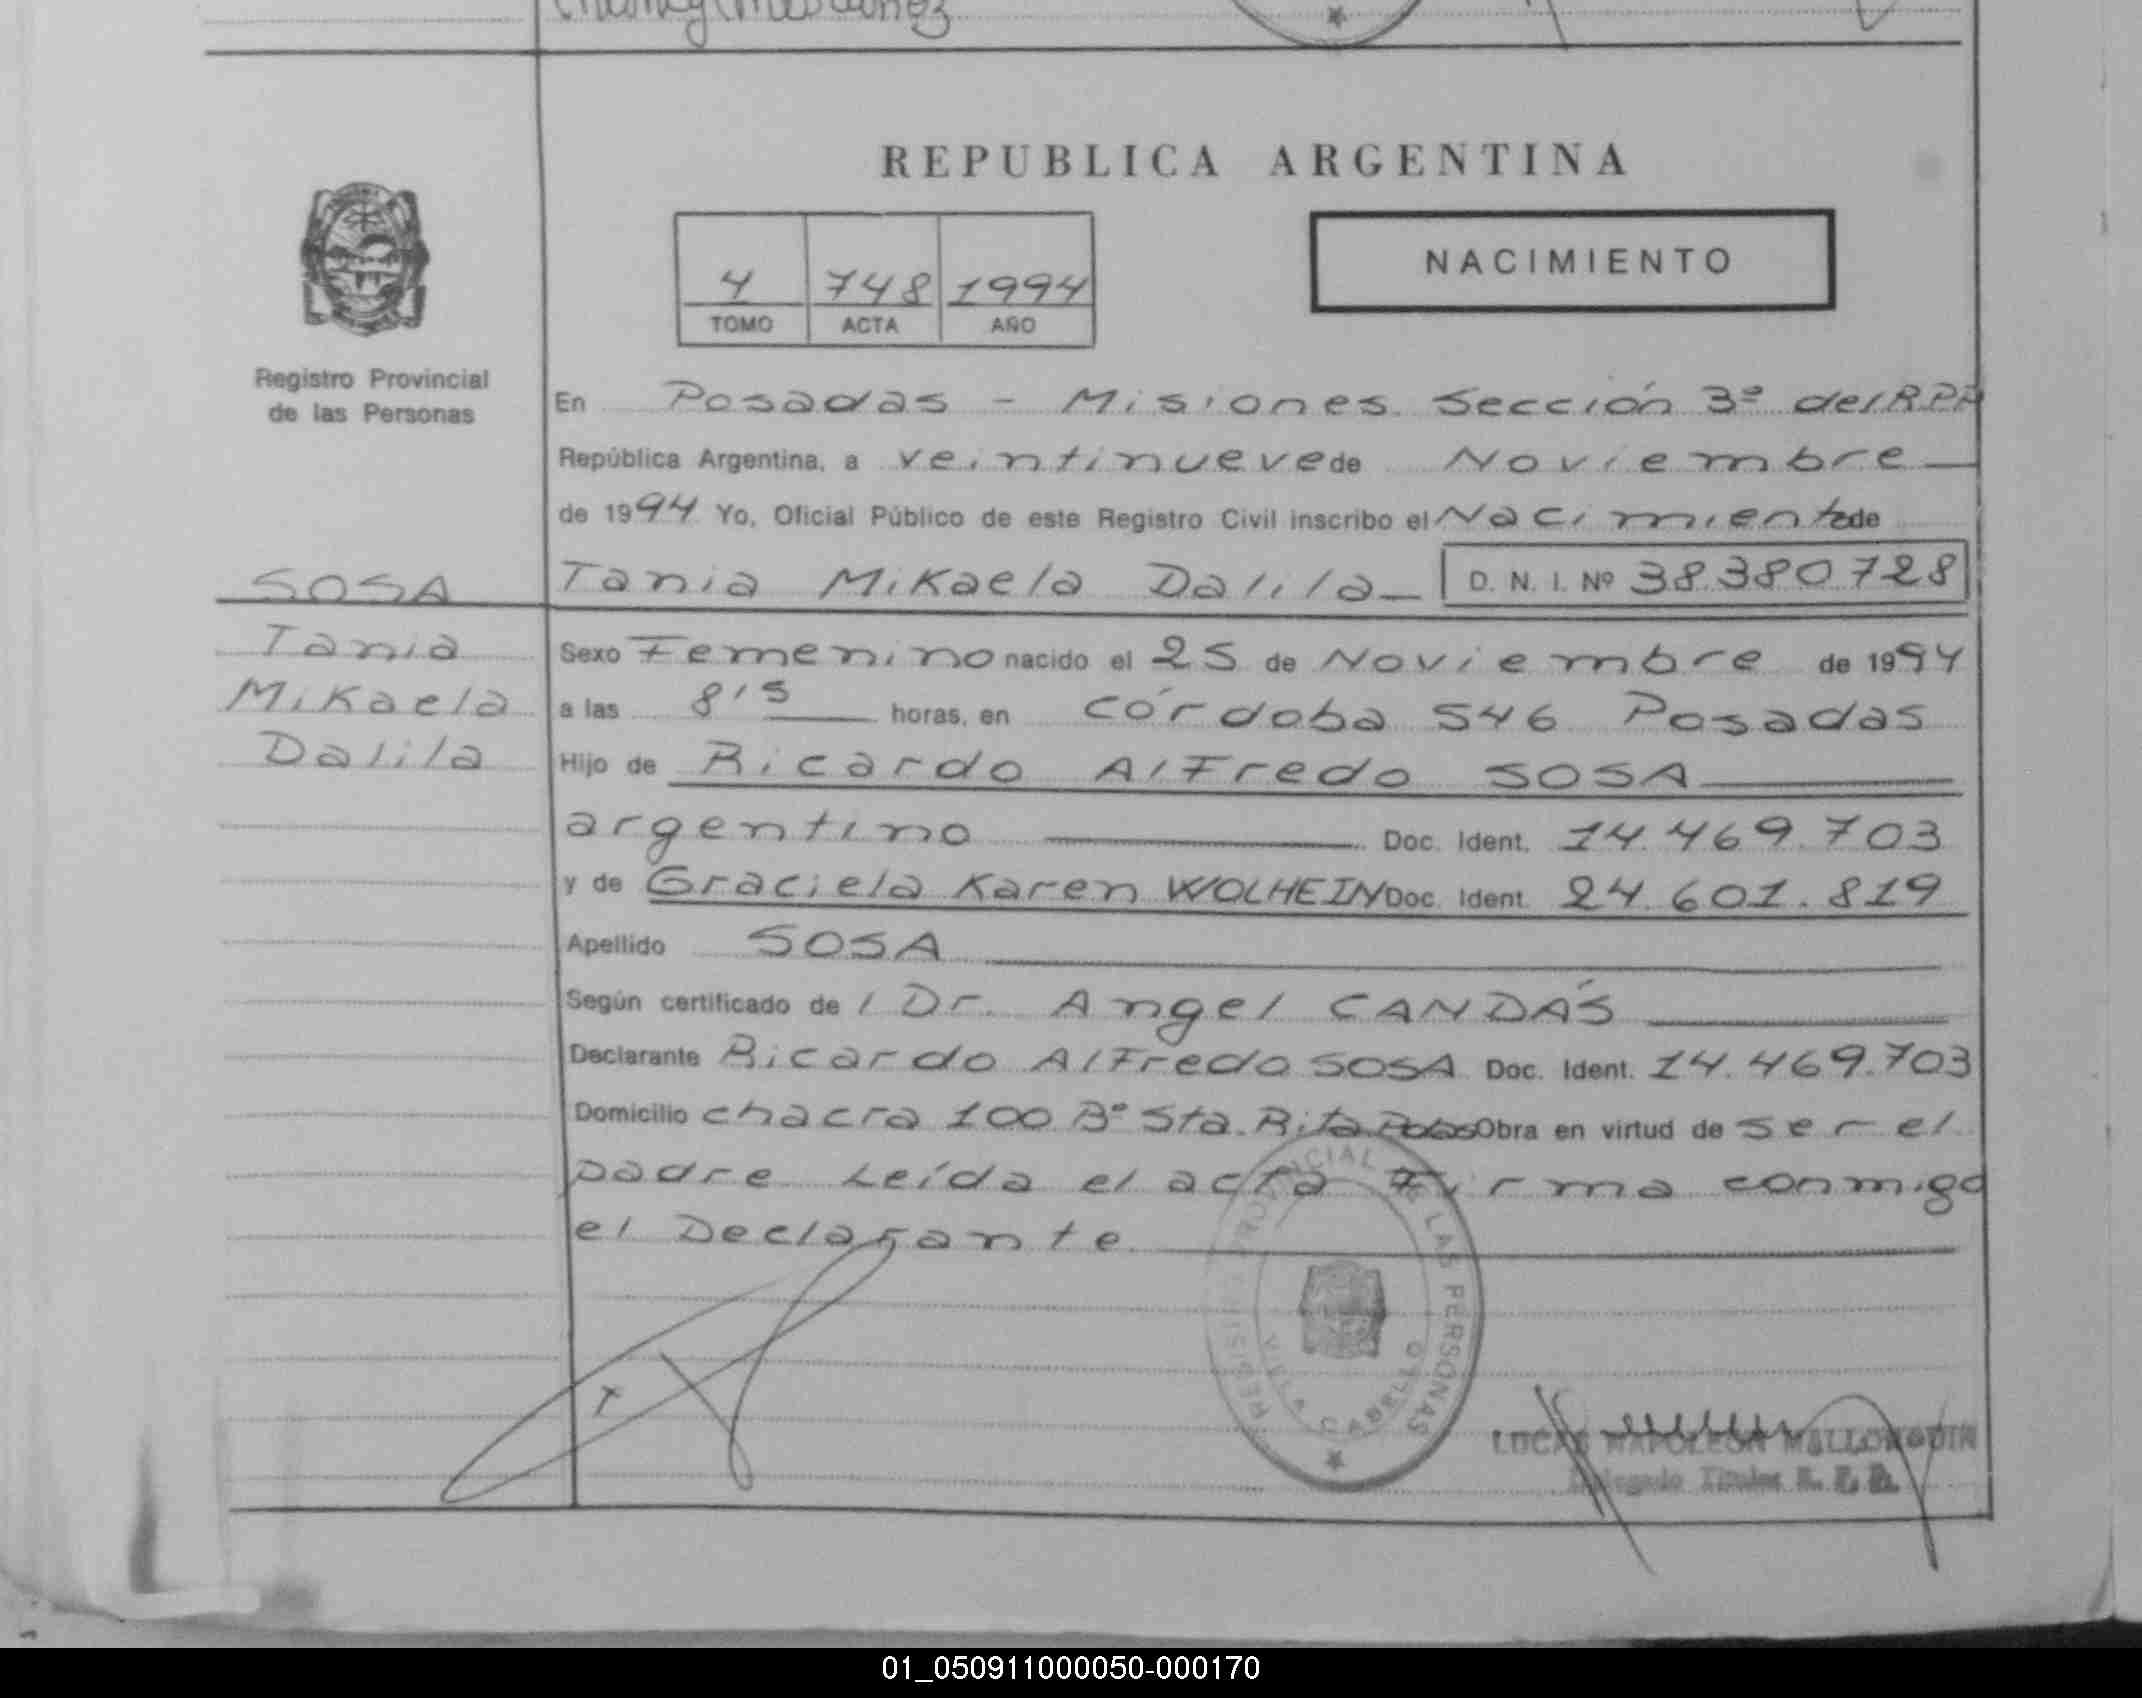 REPUBLICA ARGENTINA
4 748 1994
TOMO ACTA AÑO
NACIMIENTO
Registro Provincial
de las Personas
En Posadas - Misiones Sección 3º del R.P.P
República Argentina, a veintinueve de Noviembre
de 1994 Yo, Oficial Público de este Registro Civil inscribo el Nacimiento de
SOSA
Tania
Mikaela
Dalila
Tania Mikaela Dalila D. N. I. Nº 38.380.728
Sexo Femenino nacido el 25 de Noviembre de 1994
a las 8'5 horas, en Córdoba 546 Posadas
Hijo de Ricardo Alfredo SOSA
argentino Doc. Ident. 14.469.703
y de Graciela Karen WOLHEIN Doc. Ident. 24.601.819
Apellido SOSA
Según certificado de l Dr. Angel CANDÁS
Declarante Ricardo Alfredo SOSA Doc. Ident. 14.469.703
Domicilio chacra 100 Bº Sta. Rita Pdas Obra en virtud de ser el
padre Leída el acta Firma conmigo
el Declarante
LAS PERSONAS
CABELLO
LUCAS NAPOLEON MALLORQUIN
Delegado Titular R. P. P.
01_050911000050-000170